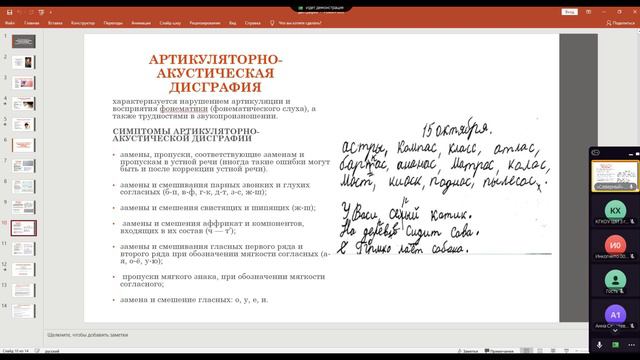 идет демонстрация
Вход
Файл Главная Вставка Конструктор Переходы Анимация Слайд-шоу Рецензирование Вид Что вы хотите сделать?
АРТИКУЛЯТОРНО-
АКУСТИЧЕСКАЯ
ДИСГРАФИЯ
характеризуется нарушением артикуляции и
восприятия фонематики (фонематического слуха), а
также трудностями в звукопроизношении.
СИМПТОМЫ АРТИКУЛЯТОРНО-
АКУСТИЧЕСКОЙ ДИСГРАФИИ
• замены, пропуски, соответствующие заменам и
пропускам в устной речи (иногда такие ошибки могут
быть и после коррекции устной речи).
• замены и смешивания парных звонких и глухих
согласных (б-п, в-ф, г-к, д-т, з-с, ж-ш);
• замены и смешения свистящих и шипящих (ж-ш);
• замены и смешения аффрикат и компонентов,
входящих в их состав (ч — т');
• замены и смешивания гласных первого ряда и
второго ряда при обозначении мягкости согласных (а-
я, о-ё, у-ю);
• пропуски мягкого знака, при обозначении мягкости
согласного;
• замена и смешение гласных: о, у, е, и.
15 октября.
астры, компас, класс, атлас,
ананас, матрас, колас,
Мост, киоск, поднос, пылесос.
У Васи серый котик.
На дереве сидит сова.
лает собака.
1
2
3
4
5
6
7
8
9
10
11
12
13
14
КХ
И0
Инкогнито 00...
Гость
А1
Щелкните, чтобы добавить заметки
Слайд 10 из 14 русский
Заметки Примечания